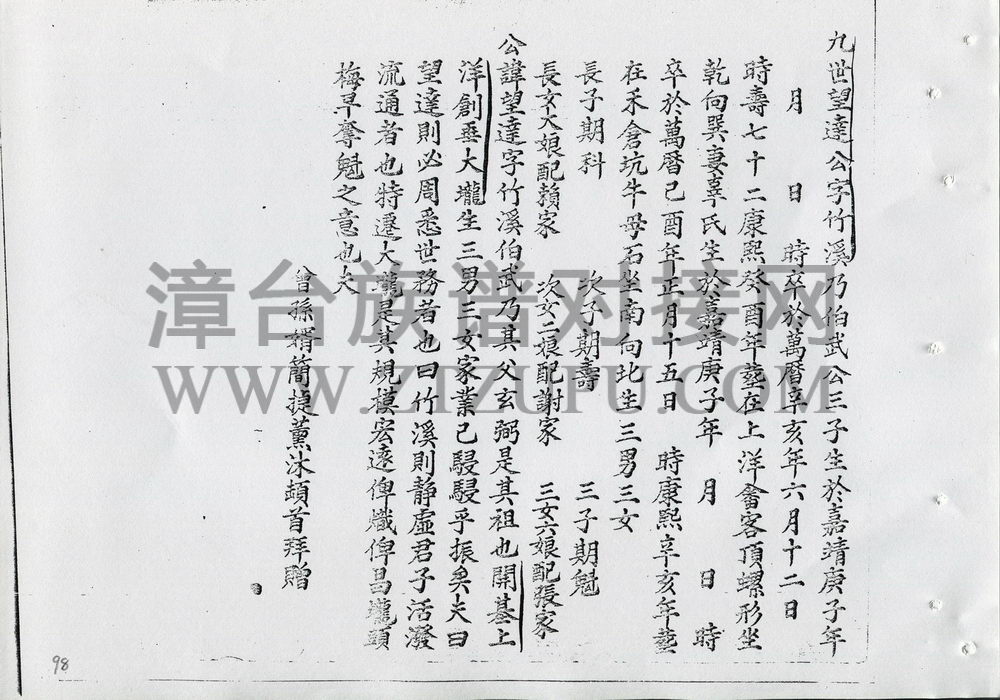 九世望達公字竹溪乃伯武公三子生於嘉靖庚子年
月 日 時卒於萬曆辛亥年六月十二日
時壽七十二康熙癸酉年塟在上洋畬客頂螺形坐
乾向巽妻辜氏生於嘉靖庚子年 月 日 時
卒於萬曆己酉年正月十五日 時康熙辛亥年塟
在禾倉坑牛母石坐南向北生三男三女
長子期科 次子期壽 三子期魁
長女大娘配賴家 次女二娘配謝家 三女六娘配張家
公諱望達字竹溪伯武乃其父玄弼是其祖也開基上
洋創垂大壠生三男三女家業已駸駸乎振矣夫曰
望達則必周悉世務者也曰竹溪則靜虛君子活潑
流通者也特遷大壠是其規模宏遠俾熾俾昌壠頭
梅早奪魁之意也夫
曾孫婿簡捷薰沐頓首拜贈
98
漳台族谱对接网
WWW.ZTZUPU.COM